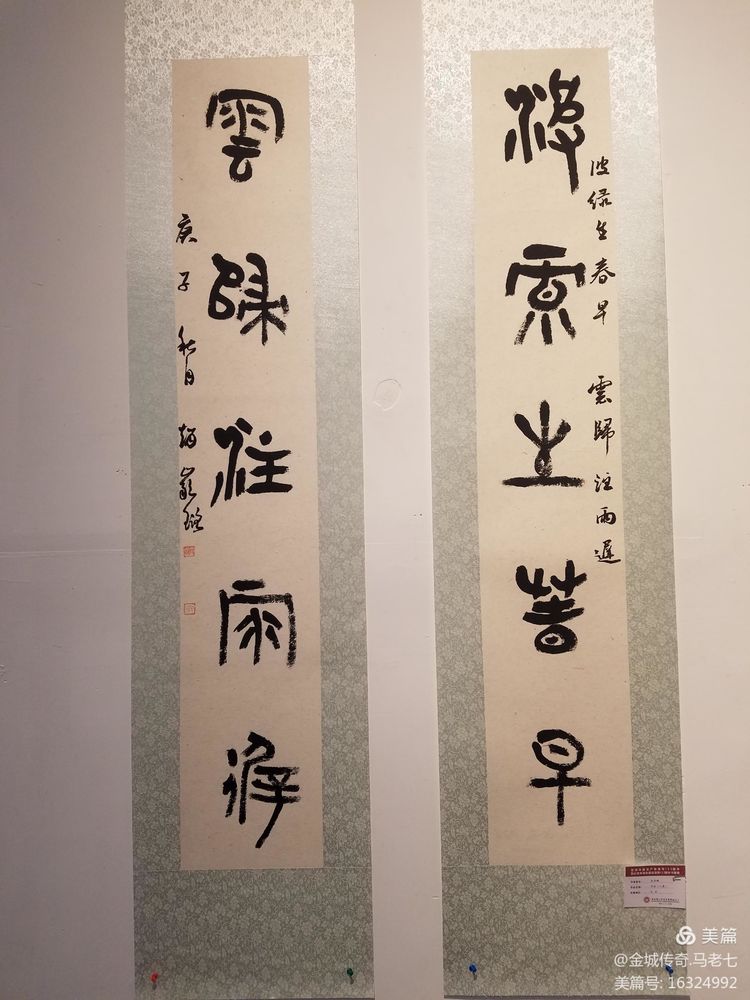 波绿生春早
波绿生春早 雲歸注雨遲
雲歸注雨遲
庚子秋月 趙巖璐
美篇
@金城传奇.马老七
美篇号: 16324992